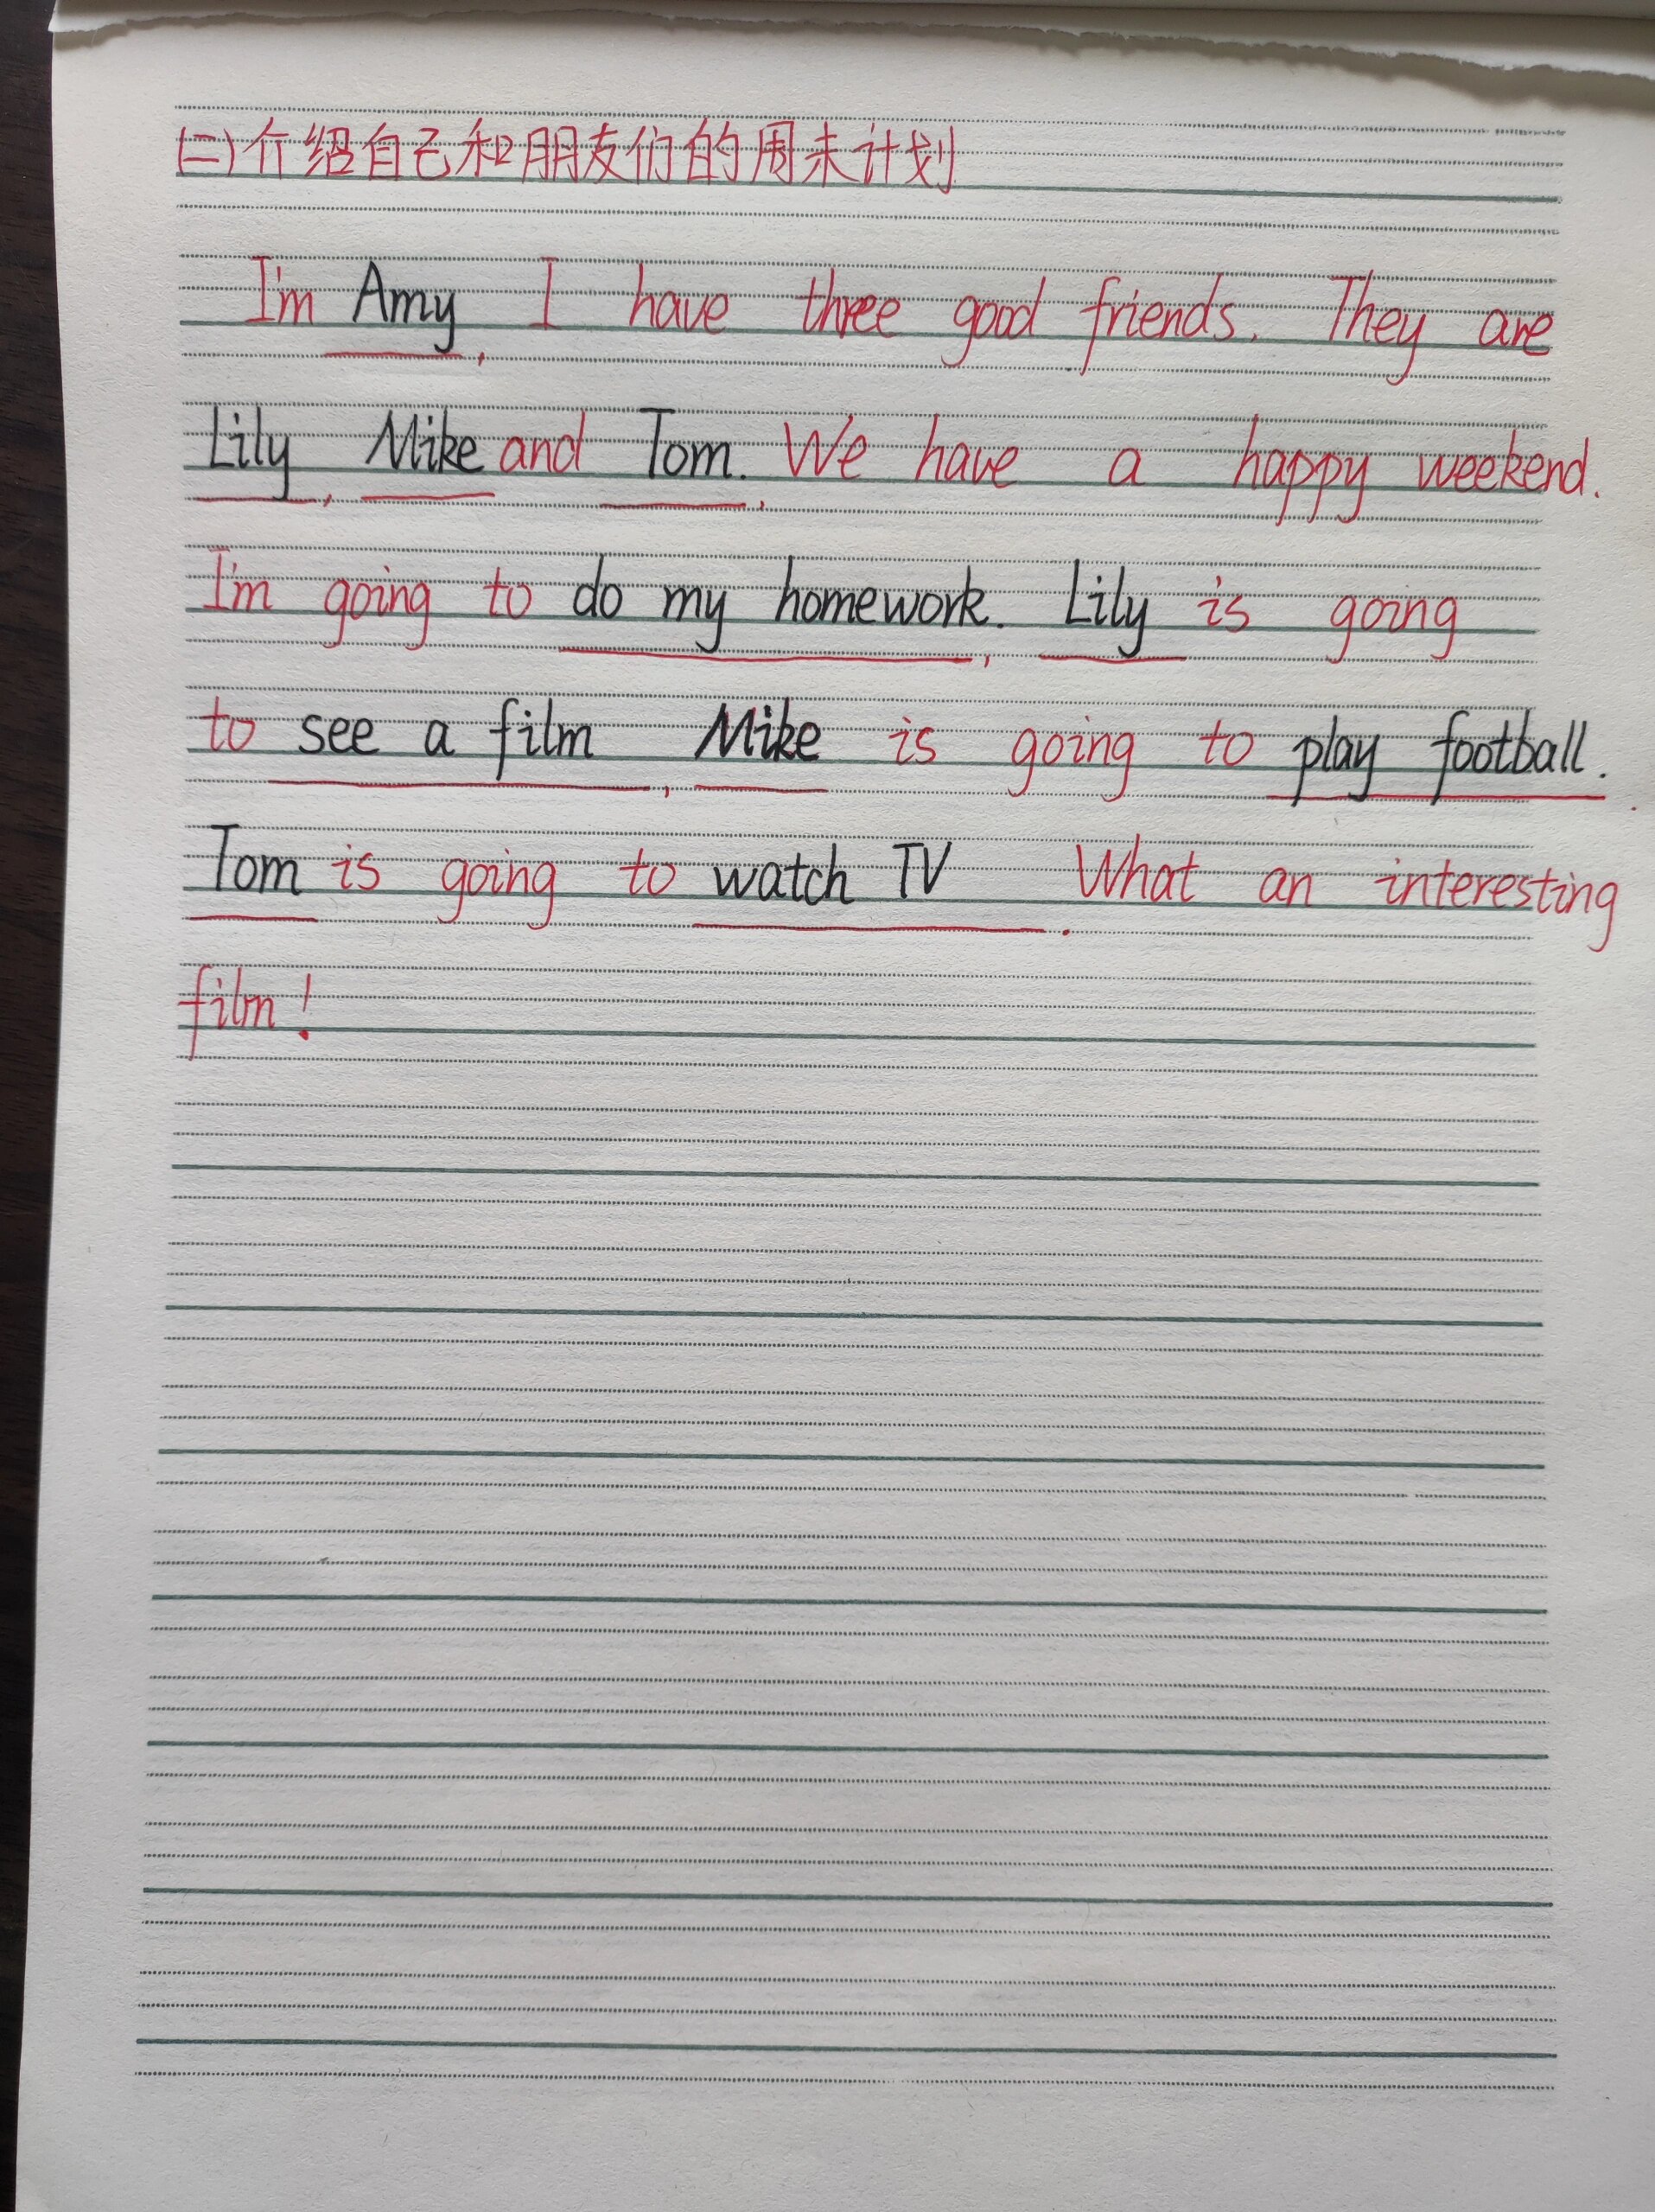 (二)介绍自己和朋友们的周末计划
I'm Amy, I have three good friends. They are
Lily, Mike and Tom., We have a happy weekend.
I'm going to do my homework., Lily is going
to see a film, Mike is going to play football..
Tom is going to watch TV. What an interesting
film!